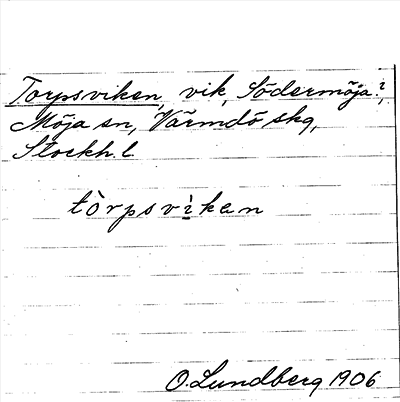 Torpsviken, vik, Södermöja?,
Möja sn, Värmdö skg,
Stockh. l.
tòrpsvìken
O. Lundberg 1906